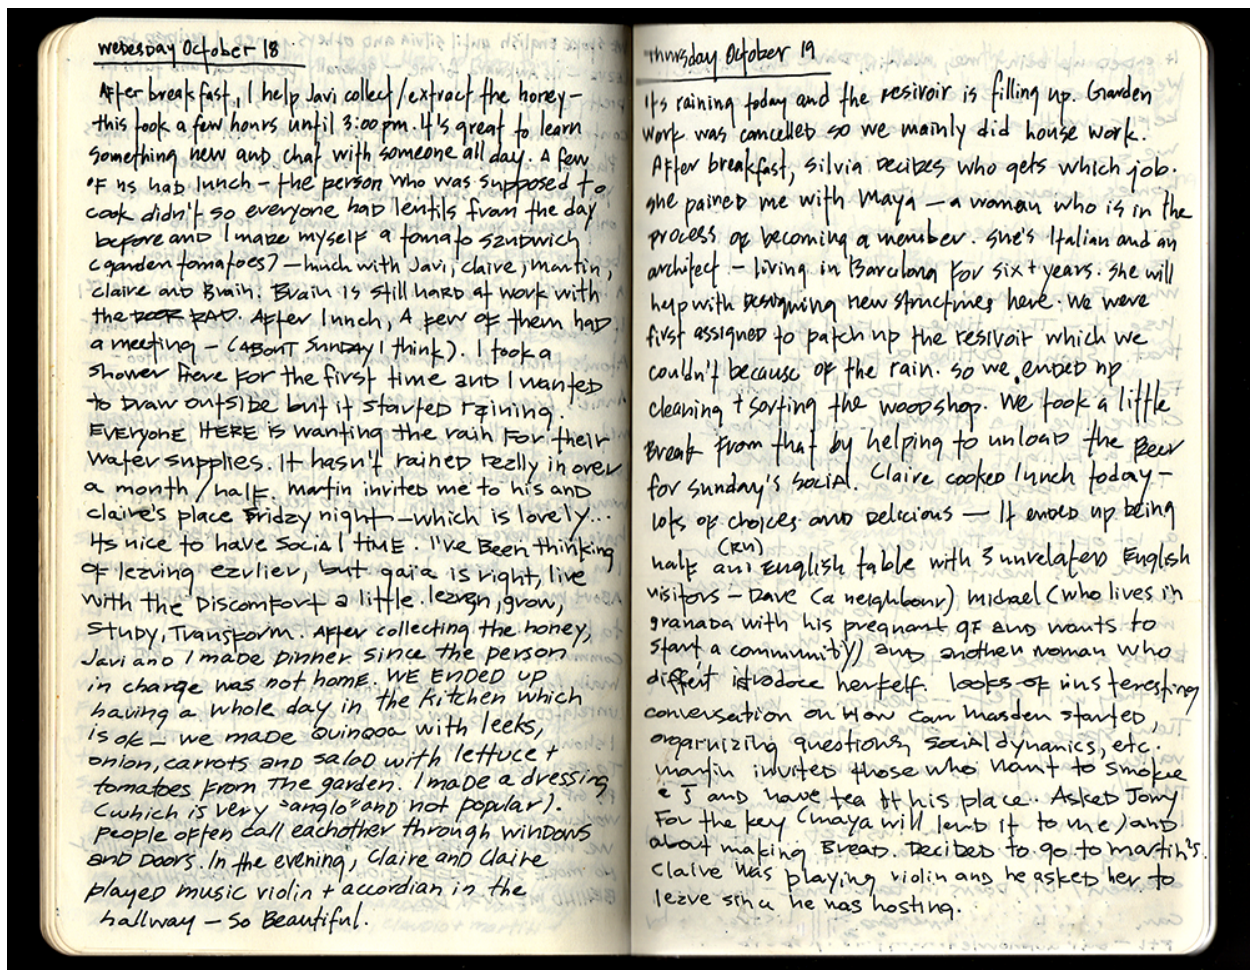 Wedesday October 18
After breakfast, I help Javi collect/extract the honey –
this took a few hours until 3:00 pm. It's great to learn
something new and chat with someone all day. A few
of us had lunch – the person who was supposed to
cook didn't so everyone had lentils from the day
before and I made myself a tomato sandwich
(garden tomatoes?) – lunch with Javi, Claire, Martin,
Claire and Brain. Brain is still hard at work with
the DOOR PAD. After lunch, A few of them had
a meeting – (ABOUT Sunday I think). I took a
shower here for the first time and I wanted
to draw outside but it started raining.
Everyone HERE is wanting the rain for their
water supplies. It hasn't rained really in over
a month/half. Martin invited me to his and
Claire's place Friday night – which is lovely...
Its nice to have social time. I've been thinking
of leaving earlier, but gaia is right, live
with the discomfort a little. learn, grow,
study, transform. After collecting the honey,
Javi and I made dinner since the person
in charge was not home. WE ENDED up
having a whole day in the kitchen which
is ok – we made Quinqoa with leeks,
onion, carrots and salad with lettuce +
tomatoes from The garden. I made a dressing
(which is very "anglo" and not popular).
people often call eachother through windows
and doors. In the evening, Claire and Claire
played music violin + accordian in the
hallway – So Beautiful.
Thursday October 19
Its raining today and the resivoir is filling up. Garden
work was cancelled so we mainly did house work.
After breakfast, Silvia decides who gets which job.
She paired me with Maya – a woman who is in the
process of becoming a member. She's Italian and an
architect – living in Barcelona for six + years. She will
help with designing new structures here. We were
first assigned to patch up the resivoir which we
couldn't because of the rain. So we ended up
cleaning + sorting the woodshop. We took a little
Break from that by helping to unload the Beer
for Sunday's social. Claire cooked lunch today –
lots of choices and delicious – It ended up being
half an English table with 3 unrelated English
visitors – Dave (a neighbour) Michael (who lives in
granada with his pregnant gf and wants to
start a community) and another woman who
herself. looks of
conversation on How Can Masden started,
organizing questions, social dynamics, etc.
Martin invited those who want to smoke
a J and have tea at his place. Asked Jony
For the key (Maya will lend it to me) and
about making Bread. Decided to go to Martin's.
Claire was playing violin and he asked her to
leave since he was hosting.